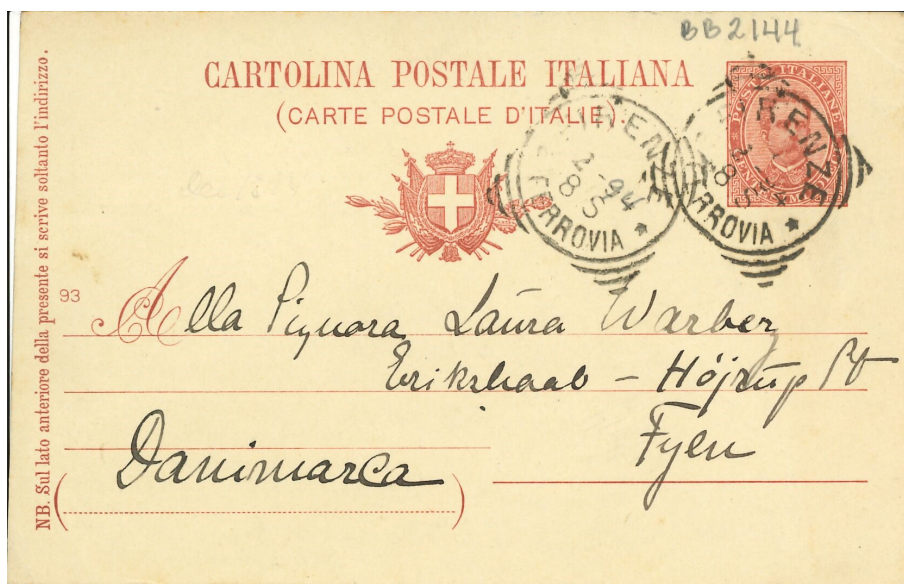 BB2144
CARTOLINA POSTALE ITALIANA
(CARTE POSTALE D'ITALIE)
POSTE ITALIANE
FIRENZE
FERROVIA *
FIRENZE
FERROVIA *
NB. Sul lato anteriore della presente si scrive soltanto l'indirizzo.
93
Alla Signora Laura Warberg
Erikshaab – Höjrup St
Fyen
Danimarca